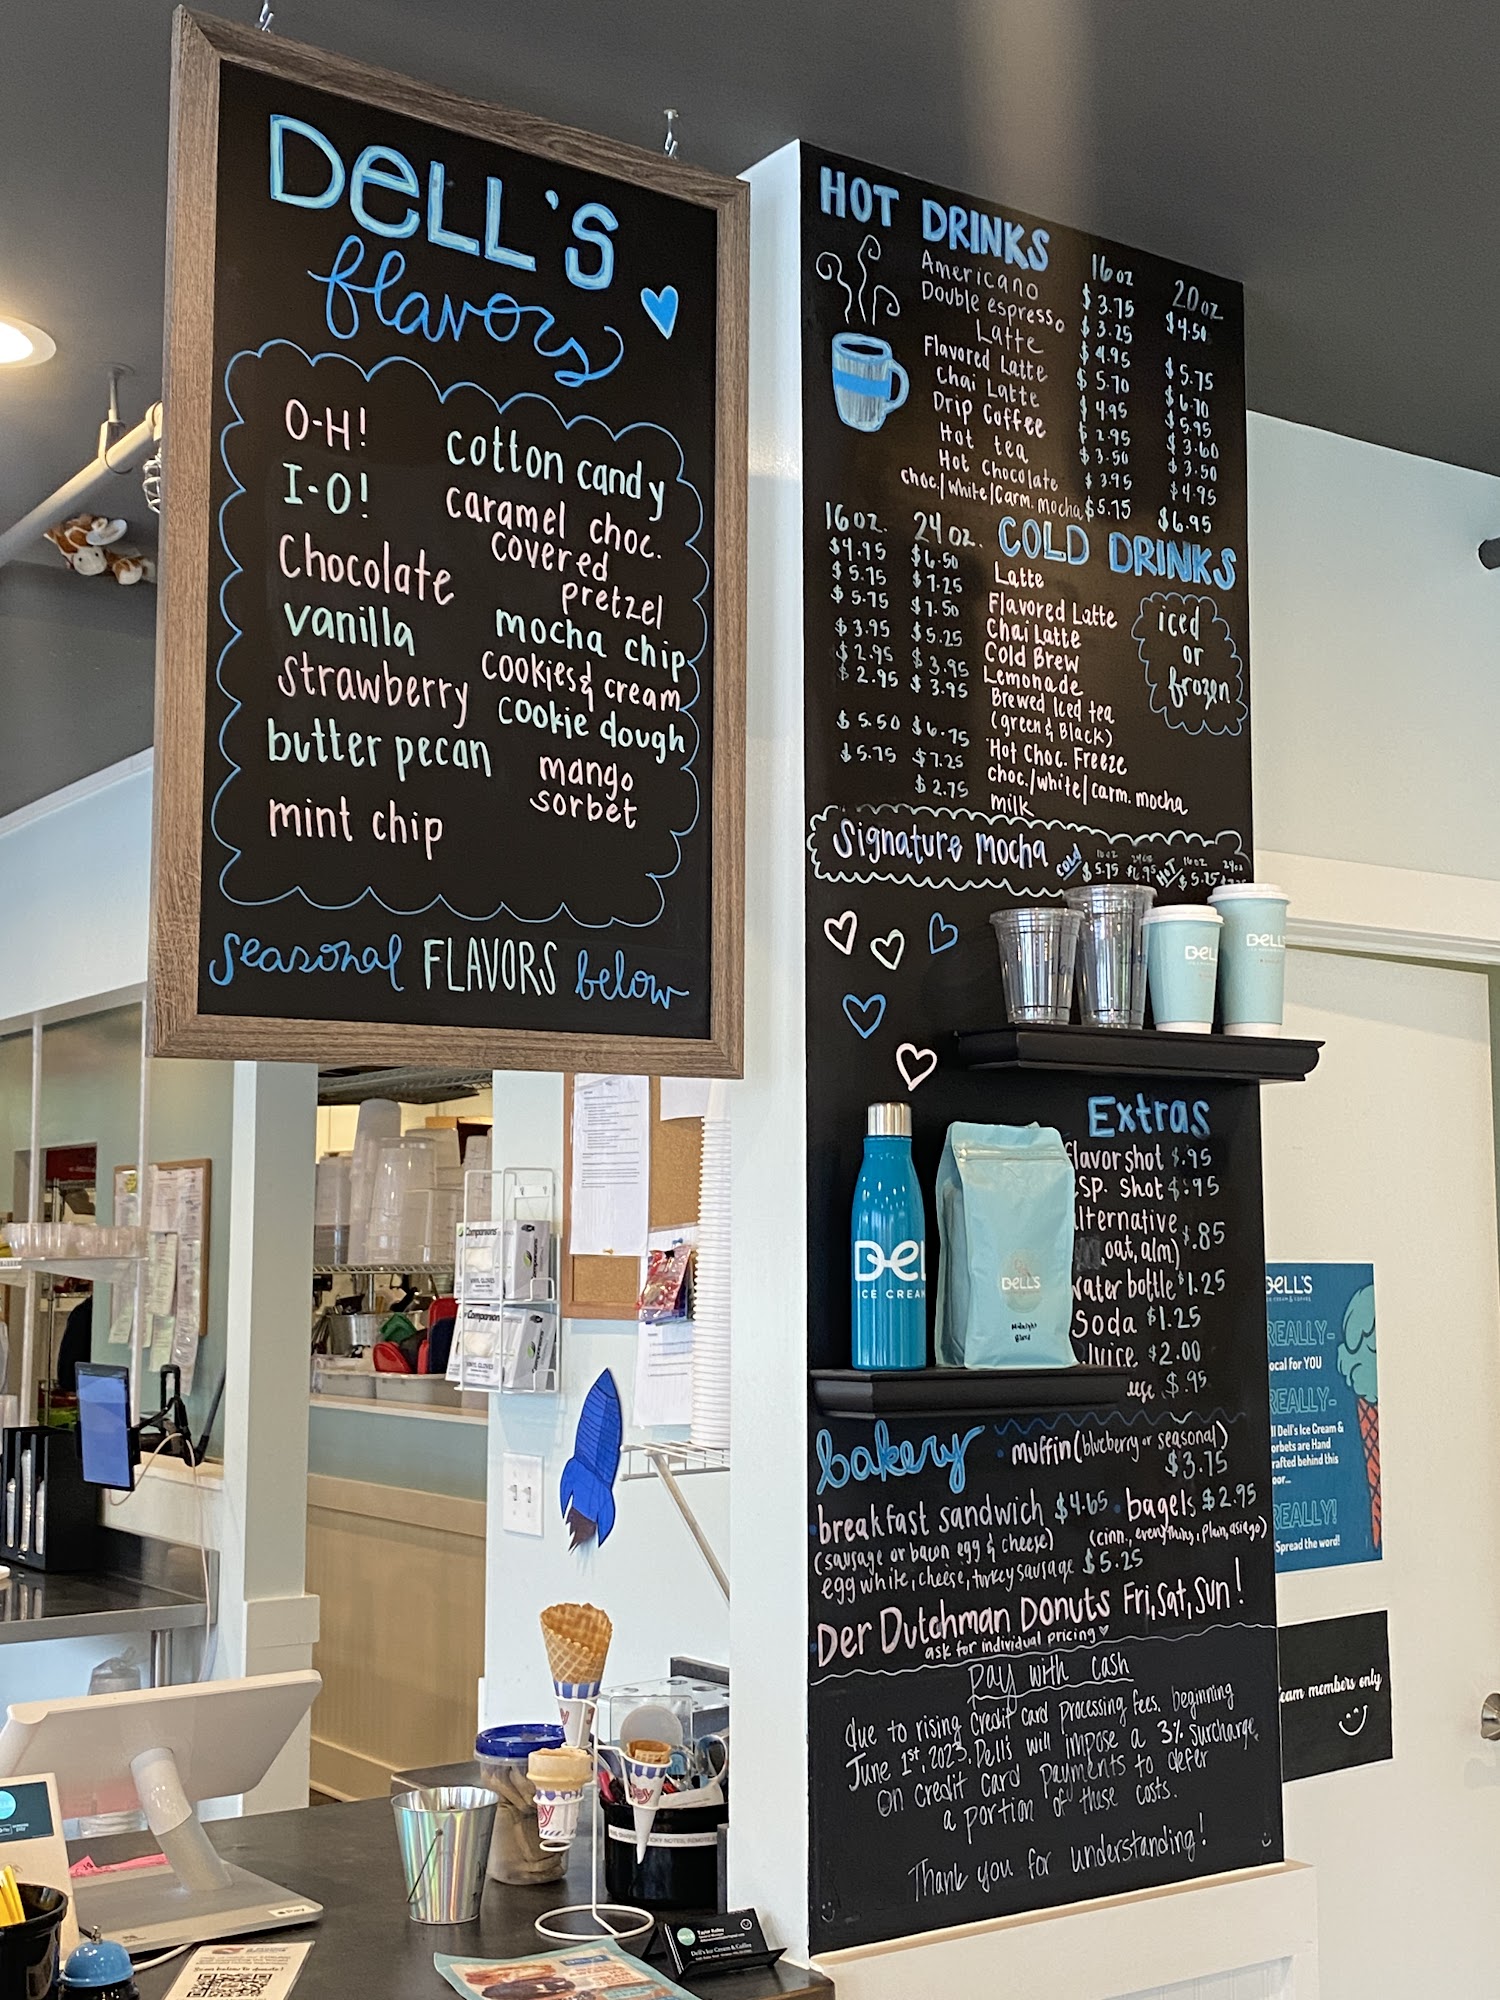 DELL'S
flavors
O-H!
I-O!
Chocolate
vanilla
strawberry
butter pecan
mint chip
cotton candy
caramel choc.
covered
pretzel
mocha chip
cookies & cream
cookie dough
mango
sorbet
seasonal FLAVORS below
HOT DRINKS
16 oz 20 oz
Americano $3.75 $4.50
Double espresso $3.25
Latte $4.95 $5.75
Flavored Latte $5.70 $6.70
Chai Latte $4.95 $5.95
Drip Coffee $2.95 $3.60
Hot tea $3.50 $3.50
Hot Chocolate $3.95 $4.95
choc./white/carm. mocha $5.75 $6.95
16 oz. 24 oz. COLD DRINKS
$4.95 $6.50 Latte
$5.75 $7.25 Flavored Latte
$5.75 $7.50 Chai Latte
$3.95 $5.25 Cold Brew
$2.95 $3.95 Lemonade
$2.95 $3.95 Brewed Iced tea
(green & Black)
$5.50 $6.75 Hot Choc. Freeze
$5.75 $7.25 choc./white/carm. mocha
$2.75 milk
iced
or
frozen
Signature Mocha COLD 16oz $5.75 24oz $6.95 HOT 16oz $5.75
DELL
Extras
flavor shot $.95
sp. shot $.95
alternative
oat, alm) $.85
water bottle $1.25
Soda $1.25
Juice $2.00
$.95
DEL
ICE CREAM
DELL'S
Midnight
Blend
bakery
muffin (blueberry or seasonal)
$3.75
breakfast sandwich $4.65
(sausage or bacon egg & cheese)
egg white, cheese, turkey sausage $5.25
bagels $2.95
(cinn., everything, plain, asiago)
Der Dutchman Donuts Fri, Sat, Sun!
ask for individual pricing
pay with cash
due to rising credit card processing fees. beginning
June 1st, 2023. Dell's will impose a 3% surcharge
on credit card payments to defer
a portion of these costs.
Thank you for understanding!
DELL'S
REALLY-
ocal for YOU
REALLY-
ll Dell's Ice Cream &
orbets are Hand
rafted behind this
oor...
REALLY!
Spread the word!
team members only
Companions
VINYL GLOVES
Companions
VINYL GLOVES
Joy
Dell's Ice Cream & Coffee